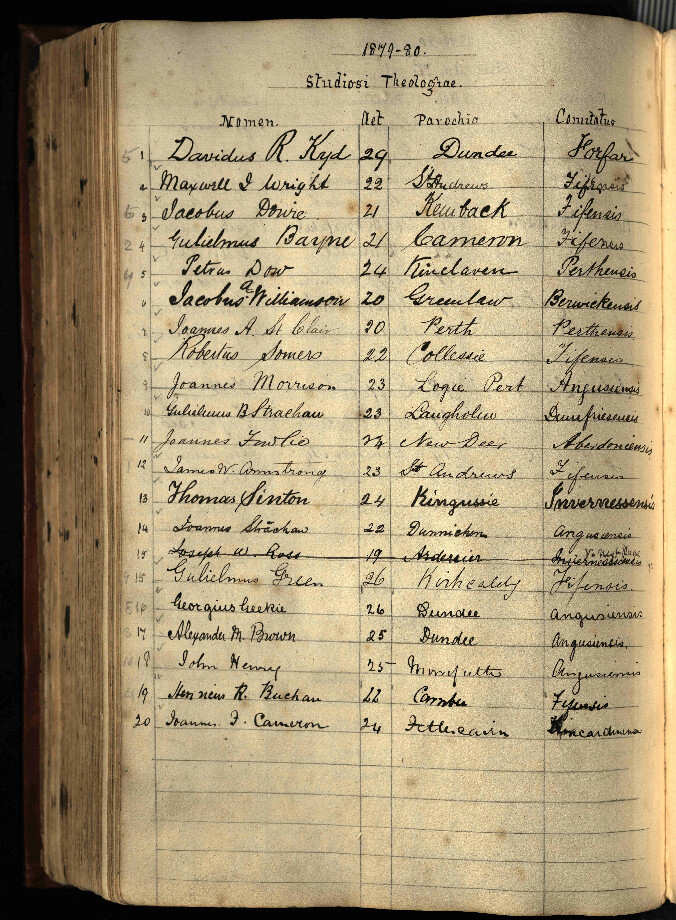 1879-80.
Studiosi Theologiae.
Nomen. Aet Parochia Comitatus
5 1 Davidus R. Kyd 29 Dundee Forfar
2 Maxwell J Wright 22 St Andrews Fifensis
6 3 Jacobus Dowie 21 Kemback Fifensis
2 4 Gulielmus Bayne 21 Cameron Fifensis
4 5 Petrus Dow 24 Kinclaven Perthensis
6 Jacobus A Williamson 20 Greenlaw Berwickensis
7 Joannes A. St Clair 20 Perth Perthensis
8 Robertus Somers 22 Collessie Fifensis
9 Joannes Morrison 23 Logie Pert Angusiensis
10 Gulielmus B Strachan 23 Langholm Dumfriesensis
11 Joannes Fowlie 24 New Deer Aberdoniensis
12 James W. Armstrong 23 St Andrews Fifensis
13 Thomas Sinton 24 Kingussie Invernessensis
14 Joannes Strachan 22 Dunnichen Angusiensis
15 Joseph W. Ross 19 Ardersier Invernessensis
9 15 Gulielmus Green 26 Kirkcaldy Fifensis.
16 Georgius Geekie 26 Dundee Angusiensis
17 Alexander M. Brown 25 Dundee Angusiensis.
18 John Henry 25 Monifieth Angusiensis
19 Henricus R. Buchan 22 Carnbee Fifensis
20 Joannes F. Cameron 24 Fettercairn Kincardinensis